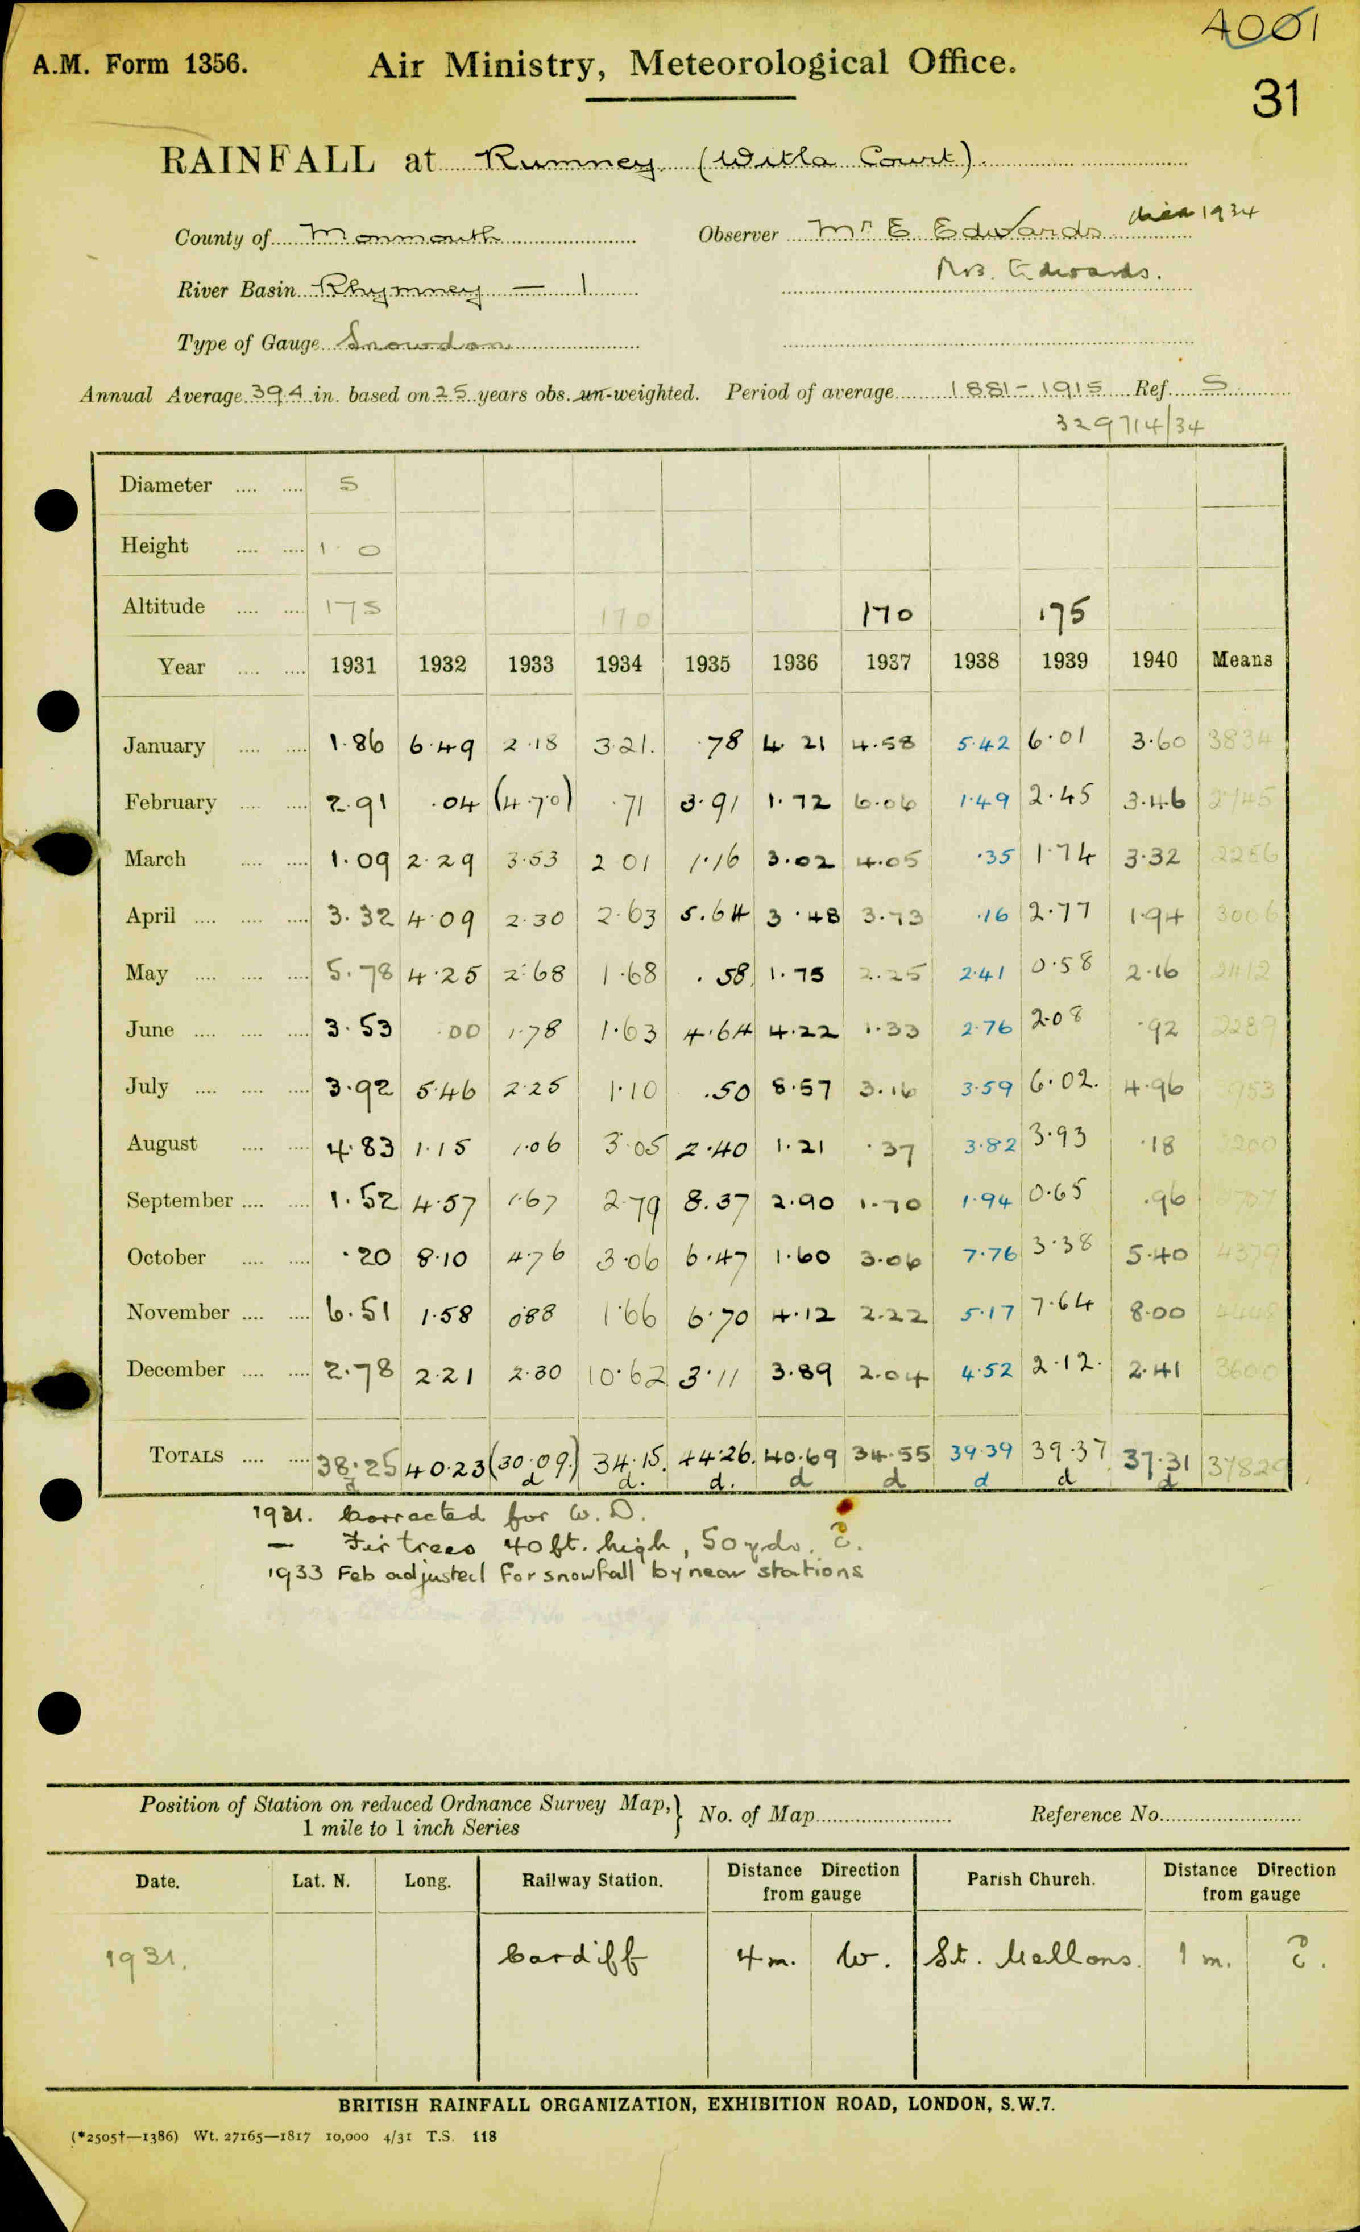 4001
A.M. Form 1356.
Air Ministry, Meteorological Office.
31
RAINFALL at Rumney (Witla Court).
County of Monmouth Observer Mr E Edwards died 1934
Mrs. Edwards.
River Basin Rhymney — 1
Type of Gauge Snowdon
Annual Average 39.4 in. based on 25 years obs. un-weighted. Period of average 1881-1915 Ref. S.
329714/34
Diameter .... .... 5
Height .... .... 1 0
Altitude .... .... 175 170 170 175
Year .... .... 1931 1932 1933 1934 1935 1936 1937 1938 1939 1940 Means
January .... .... 1.86 6.49 2.18 3.21. .78 4.21 4.58 5.42 6.01 3.60 3834
February .... .... 2.91 .04 (4.70) .71 3.91 1.72 6.06 1.49 2.45 3.46 2745
March .... .... 1.09 2.29 3.53 2 01 1.16 3.02 4.05 .35 1.74 3.32 2256
April .... .... .... 3.32 4.09 2.30 2.63 5.64 3.48 3.73 .16 2.77 1.94 3006
May .... .... .... 5.78 4.25 2.68 1.68 .58 1.75 2.25 2.41 0.58 2.16 2412
June .... .... .... 3.53 .00 1.78 1.63 4.64 4.22 1.33 2.76 2.08 .92 2289
July .... .... .... 3.92 5.46 2.25 1.10 .50 8.57 3.16 3.59 6.02. 4.96 3953
August .... .... 4.83 1.15 1.06 3.05 2.40 1.21 .37 3.82 3.93 .18 2200
September .... .... 1.52 4.57 1.67 2.79 8.37 2.90 1.70 1.94 0.65 .96 2707
October .... .... .20 8.10 4.76 3.06 6.47 1.60 3.06 7.76 3.38 5.40 4379
November .... .... 6.51 1.58 0.88 1.66 6.70 4.12 2.22 5.17 7.64 8.00 4448
December .... .... 2.78 2.21 2.30 10.62 3.11 3.89 2.04 4.52 2.12. 2.41 3600
TOTALS .... .... 38.25 40.23 (30.09.) 34.15. 44.26. 40.69 34.55 39.39 39.37 37.31 37829
d d d. d. d d d d d
1931. Corrected for W. D.
— Fir trees 40 ft. high, 50 yds. E.
1933 Feb adjusted for snowfall by near stations
Position of Station on reduced Ordnance Survey Map,} No. of Map Reference No.
1 mile to 1 inch Series
Date. Lat. N. Long. Railway Station. Distance Direction from gauge Parish Church. Distance Direction from gauge
1931. Cardiff 4 m. W. St. Mellons. 1 m. E.
BRITISH RAINFALL ORGANIZATION, EXHIBITION ROAD, LONDON, S.W.7.
(*2505†—1386) Wt. 27165—1817 10,000 4/31 T.S. 118